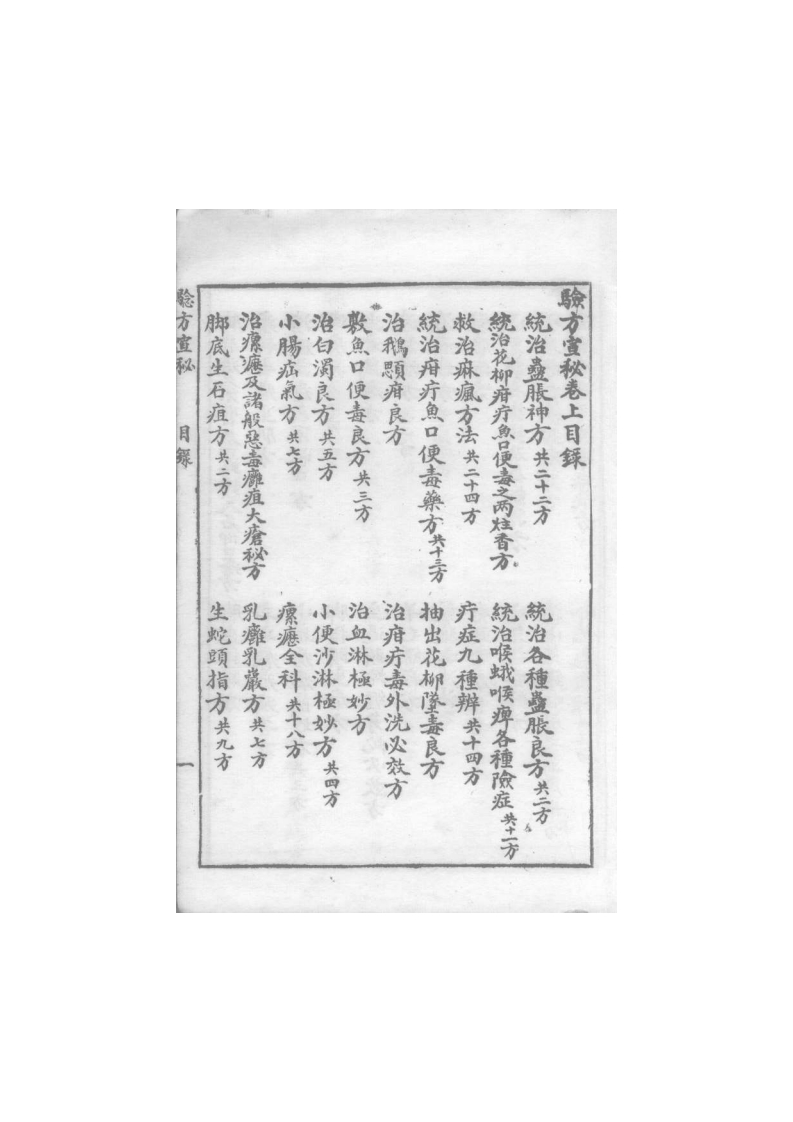 驗方宣秘卷上目錄
統治蠱脹神方 共二十二方
統治各種蠱脹良方 共二方
統治花柳疳疔魚口便毒之两炷香方
統治喉蛾喉痺各種險症 共十一方
救治痳瘋方法 共二十四方
疔症九種辨 共十四方
統治疳疔魚口便毒藥方 共十三方
抽出花柳墜毒良方
治鵝顋疳良方
治疳疔毒外洗必效方
敷魚口便毒良方 共三方
治血淋極妙方
治白濁良方 共五方
小便沙淋極妙方 共四方
小腸疝氣方 共七方
瘰癧全科 共十八方
治瘰癧及諸般惡毒癰疽大瘡秘方
乳癰乳巖方 共七方
脚底生石疽方 共二方
生蛇頭指方 共九方
驗方宣秘 目錄 一